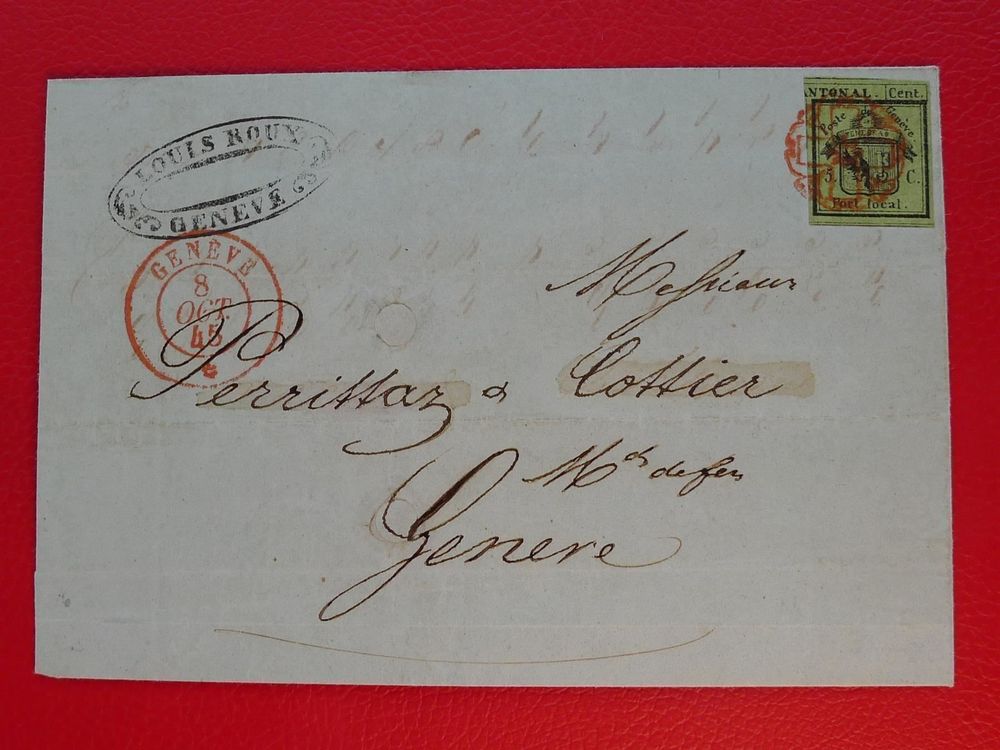 LOUIS ROUX
GENEVE
GENÈVE
8
OCT.
45
ANTONAL. Cent.
Poste de Genève
5. C.
Port local.
Messieurs
Perrittaz & Cottier
Mds de fer
Geneve